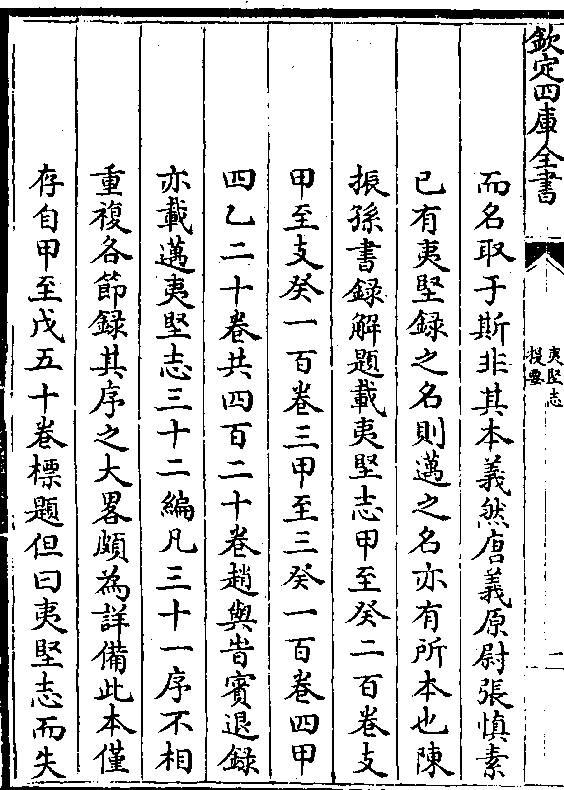 欽定四庫全書
夷堅志
提要
二
而名取于斯非其本義然唐義原尉張慎素
已有夷堅録之名則邁之名亦有所本也陳
振孫書録解題載夷堅志甲至癸二百卷支
甲至支癸一百卷三甲至三癸一百卷四甲
四乙二十卷共四百二十卷趙與旹賓退録
亦載邁夷堅志三十二編凡三十一序不相
重複各節録其序之大畧頗為詳備此本僅
存自甲至戊五十卷標題但曰夷堅志而失